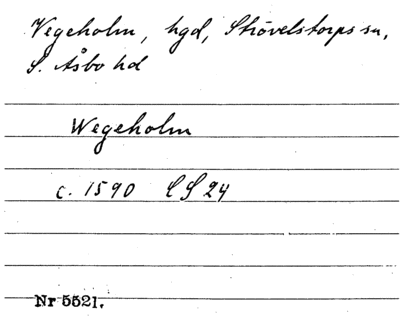 Vegeholm, hgd, Strövelstorps sn,
S. Åsbo hd
Wegeholm
c. 1590 LS 24
Nr 5521.